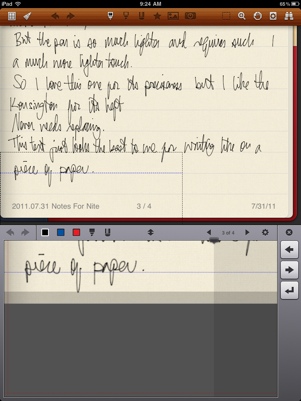 iPad 9:24 AM 65%
But the pen is so much lighter and requires such
a much more lighter touch.
So I love this one for its preciseness but I like the
Kensington for its heft.
Never needs replacing.
This text just looks the best to me for writing like on a
piece of paper.
2011.07.31 Notes For Nite 3 / 4 7/31/11
3 of 4
piece of paper.